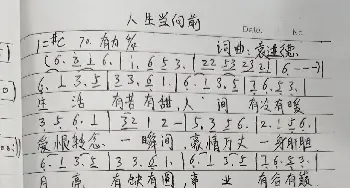 人生当向前
Date. No.
1=♯C 70. 有力答 词曲:袁进德
(6. 3 1 6. | 1. 6 5 3. | 22 53 23 21 | 6. - - -)
6. 1 3. 5 | 3 3. 6 1. | 6. 1 3. 5 | 3 6. 5 3.
生 活 有苦有甜 人 间 有冷有暖
3 5 6. 1 | 32 1 2 - | 5. 3 5 6. | 2. 1 5 6.
爱恨轻念 一瞬间. 豪情万丈 一身肝胆
6. 1 3. 5 | 3 3. 6. 1 | 6. 1 3. 5 | 3 6. 5 3.
月 亭 有缺有圆 事 业 有合有难